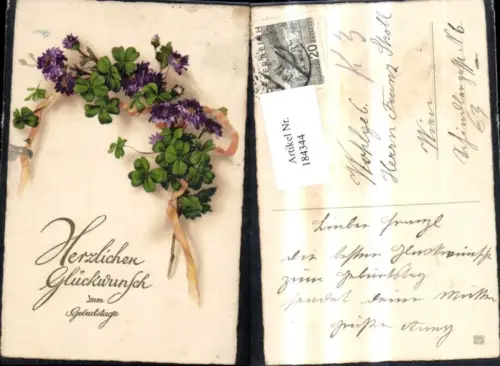 Herzlichen
Glückwunsch
zum
Geburtstage
ÖSTERREICH
20
Artikel Nr.
184344
Wohlgeb.
Herrn Franz
Wien
Lieber Franzl
die besten Glückwünsche
zum Geburtstag
sendet deine Mutter